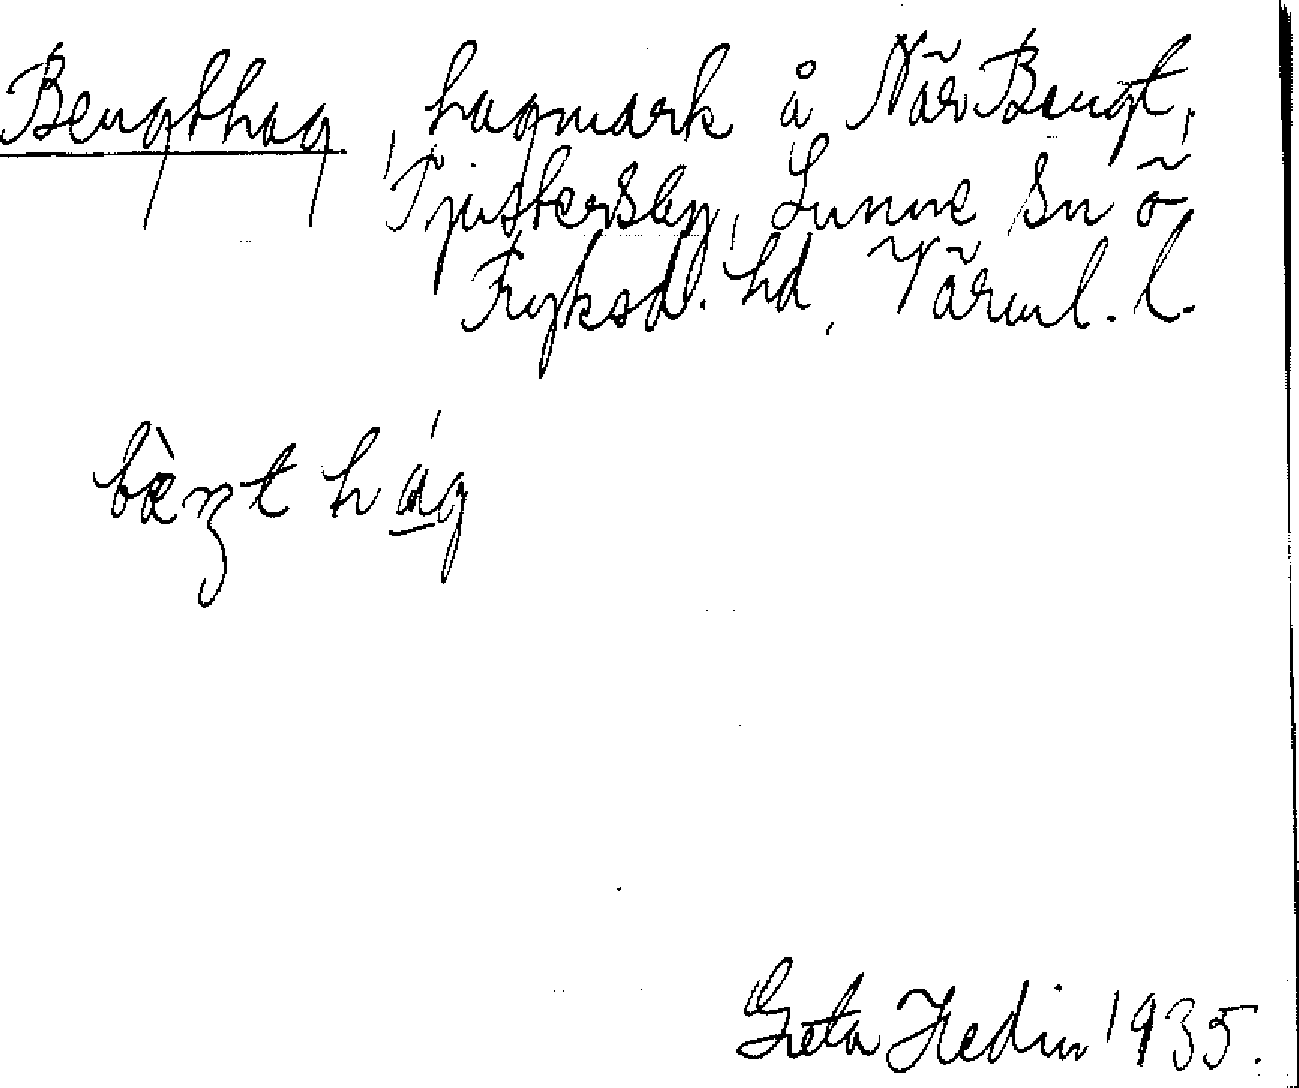 Bengthag, hagmark å När Bengt,
Tjustersby, Sunne sn o
Fryksd. hd, Värml. l.
bæ̀nʒt hág
Greta Hedin 1935.